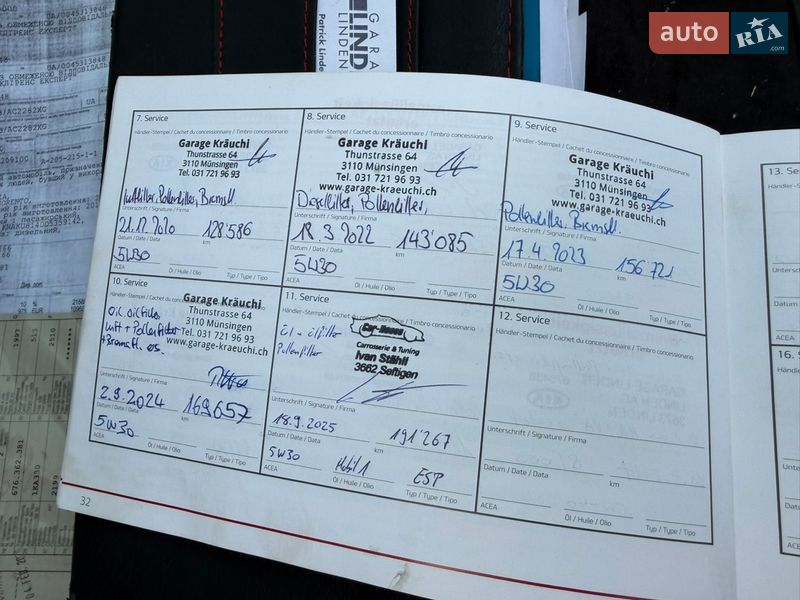 GARA
LIND
LINDEN
Patrick Linde
auto RIA .com
UA/0045313848
7. Service
Händler-Stempel / Cachet du concessionnaire / Timbro concessionario
Garage Kräuchi
Thunstrasse 64
3110 Münsingen
Tel. 031 721 96 93
www.garage-kraeuchi.ch
Luftfilter, Pollenfilter, Bremsfl.
Unterschrift / Signature / Firma
21.12.2020 128'586
Datum / Date / Data km
5W30
ACEA Öl / Huile / Olio Typ / Type / Tipo
8. Service
Händler-Stempel / Cachet du concessionnaire / Timbro concessionario
Garage Kräuchi
Thunstrasse 64
3110 Münsingen
Tel. 031 721 96 93
www.garage-kraeuchi.ch
Dieselfilter, Pollenfilter,
Unterschrift / Signature / Firma
18.3.2022 143'085
Datum / Date / Data km
5W30
ACEA Öl / Huile / Olio Typ / Type / Tipo
9. Service
Händler-Stempel / Cachet du concessionnaire / Timbro concessionario
Garage Kräuchi
Thunstrasse 64
3110 Münsingen
Tel. 031 721 96 93
www.garage-kraeuchi.ch
Pollenfilter, Bremsfl.
Unterschrift / Signature / Firma
17.4.2023 156'721
Datum / Date / Data km
5W30
ACEA Öl / Huile / Olio Typ / Type / Tipo
10. Service
Händler-Stempel / Cachet du
Garage Kräuchi
Thunstrasse 64
3110 Münsingen
Tel. 031 721 96 93
www.garage-kraeuchi.ch
Luft + Pollenfilter
Unterschrift / Signature / Firma
2.9.2024 169657
Datum / Date / Data km
5W30
ACEA Öl / Huile / Olio Typ / Type / Tipo
11. Service
Händler-Stempel / Cachet du concessionnaire / Timbro concessionario
Öl - ölfilter
Pollenfilter
Carrosserie & Tuning
Ivan Stähli
3662 Seftigen
Unterschrift / Signature / Firma
18.9.2025 191'267
Datum / Date / Data km
5W30 Mobil 1 ESP
ACEA Öl / Huile / Olio Typ / Type / Tipo
12. Service
Händler-Stempel / Cachet du concessionnaire / Timbro concessionario
Unterschrift / Signature / Firma
Datum / Date / Data km
ACEA Öl / Huile / Olio Typ / Type / Tipo
32
13. S
Händler-
Unterschri
Datum / Da
ACEA
16.
Händ
Unte
Datu
ACEA